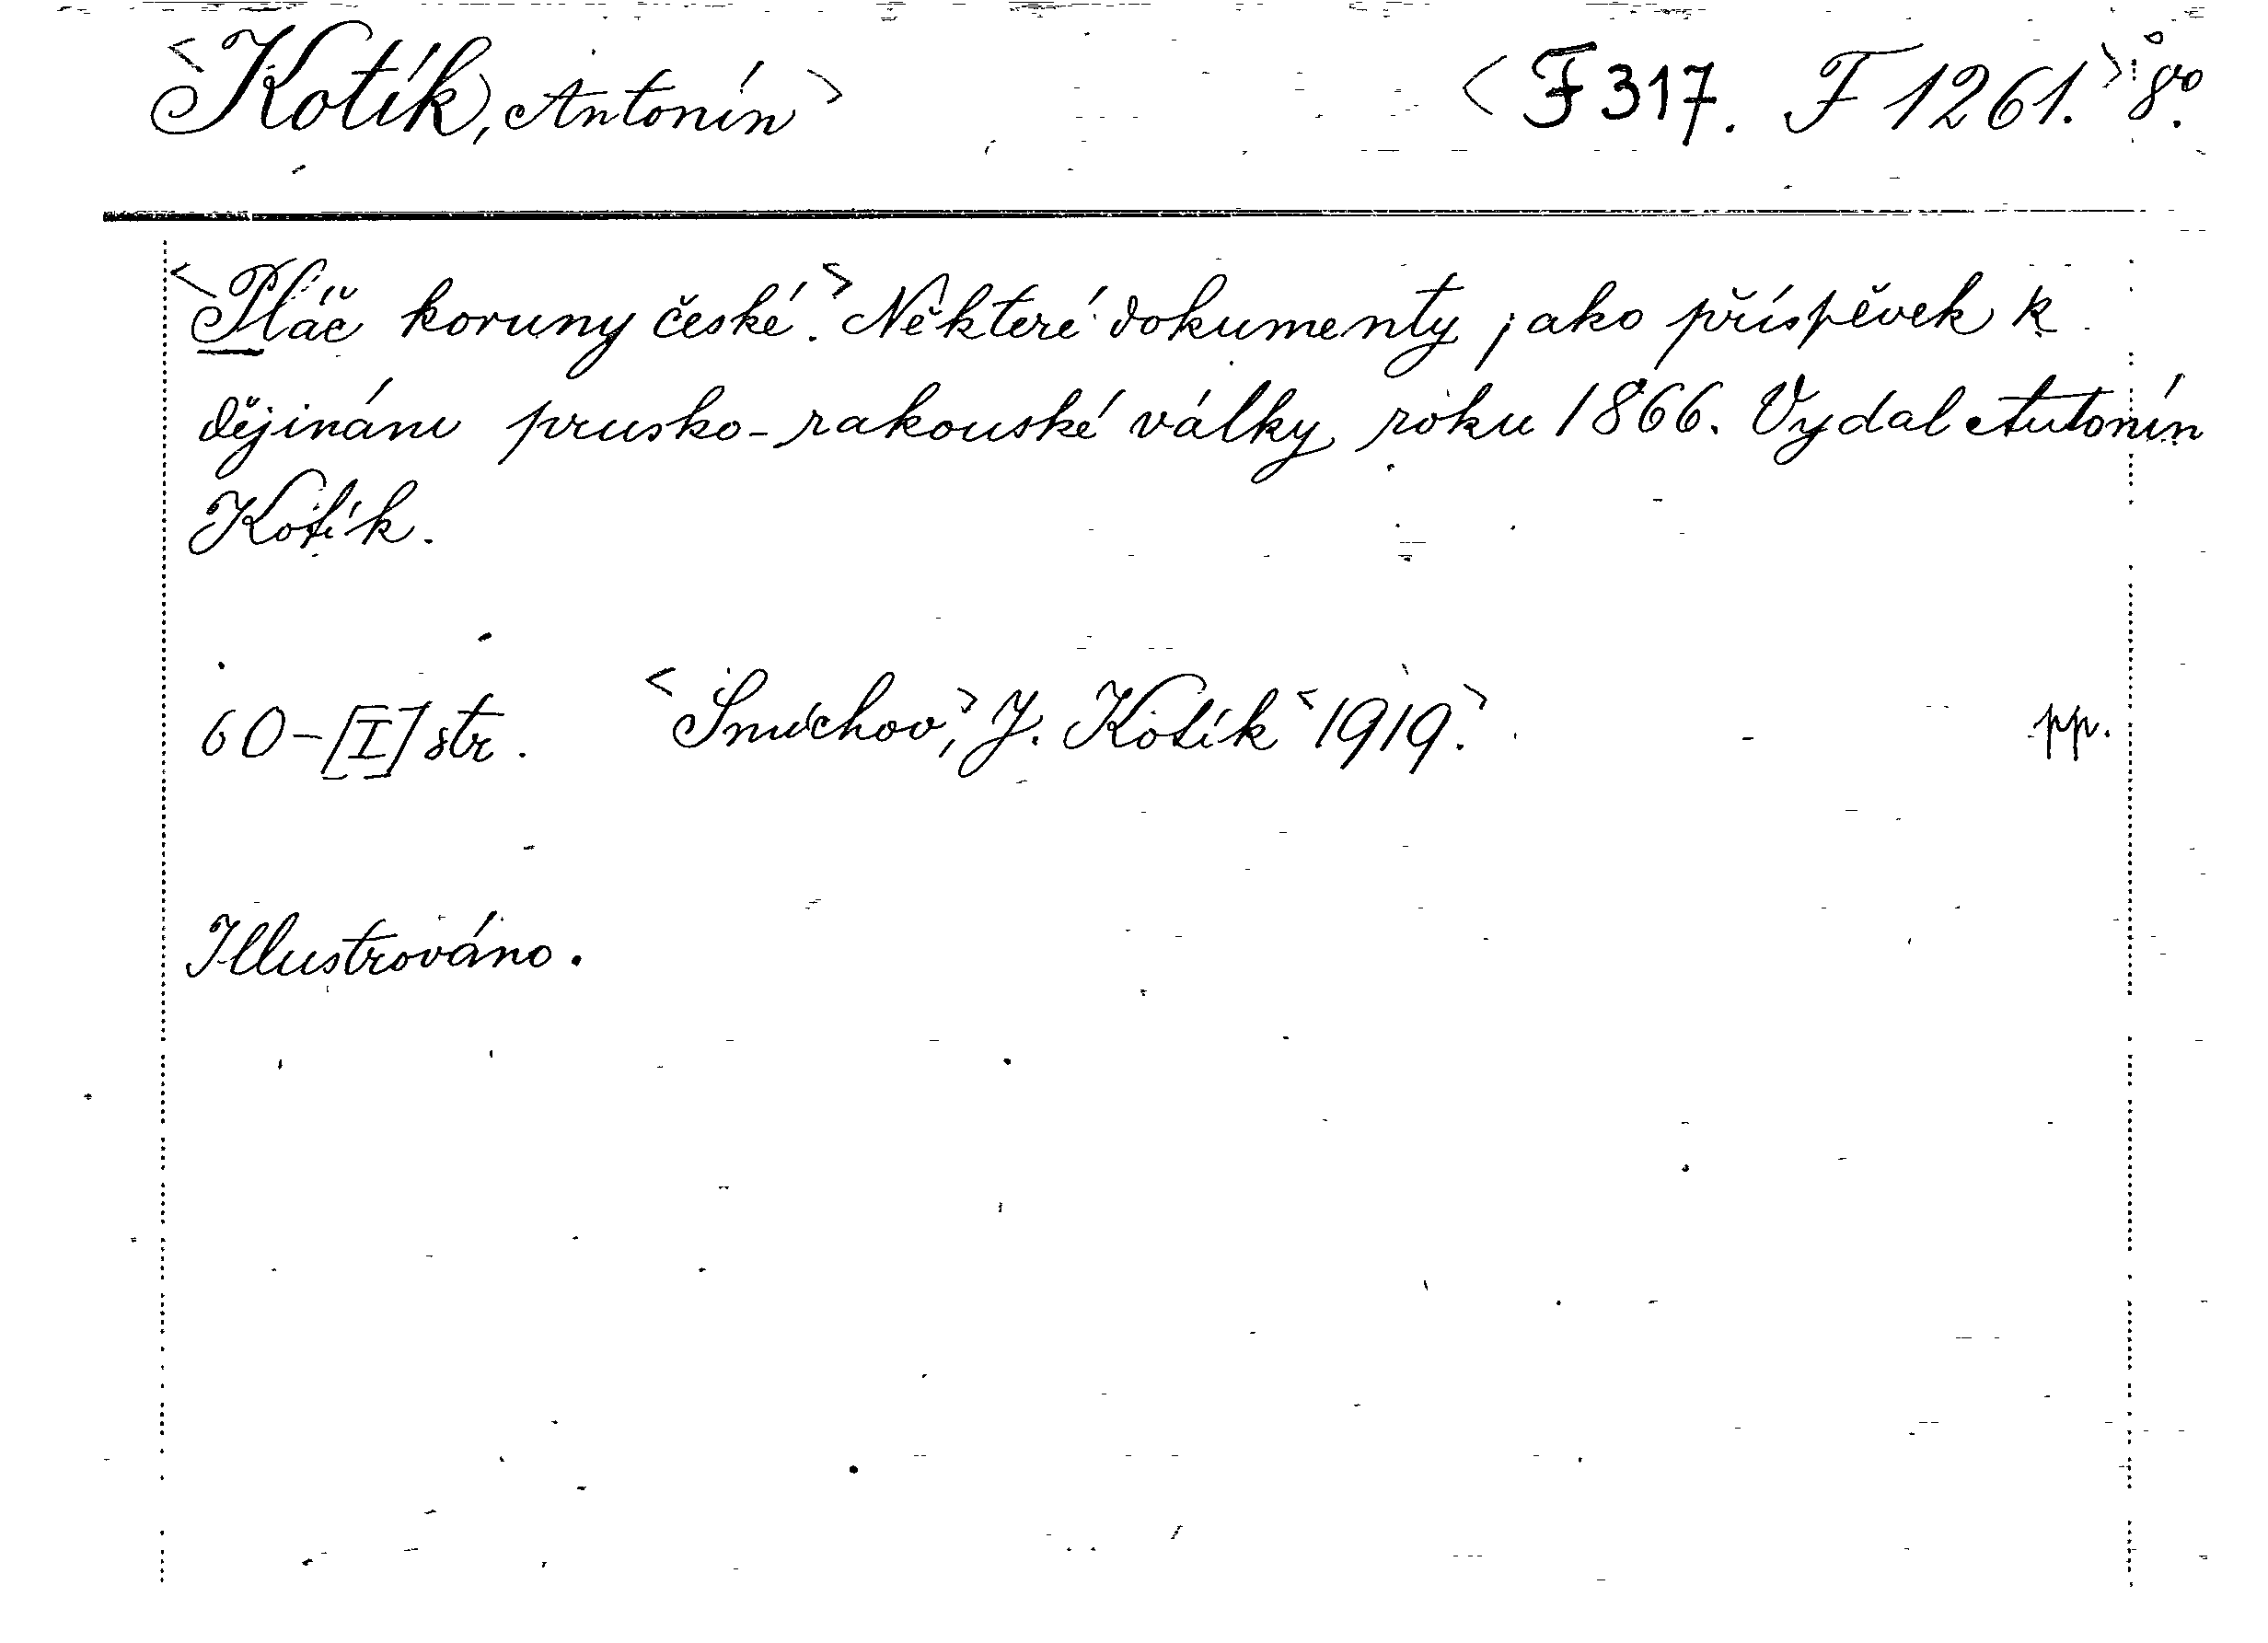 <Kotík, Antonín> <F 317. F 1261.> 8º.
<Pláč koruny české.> Některé dokumenty jako příspěvek k
dějinám prusko-rakouské války roku 1866. Vydal Antonín
Kotík.
60-[I] str. <Smíchov,> J. Kotík <1919.> pp.
Illustrováno.